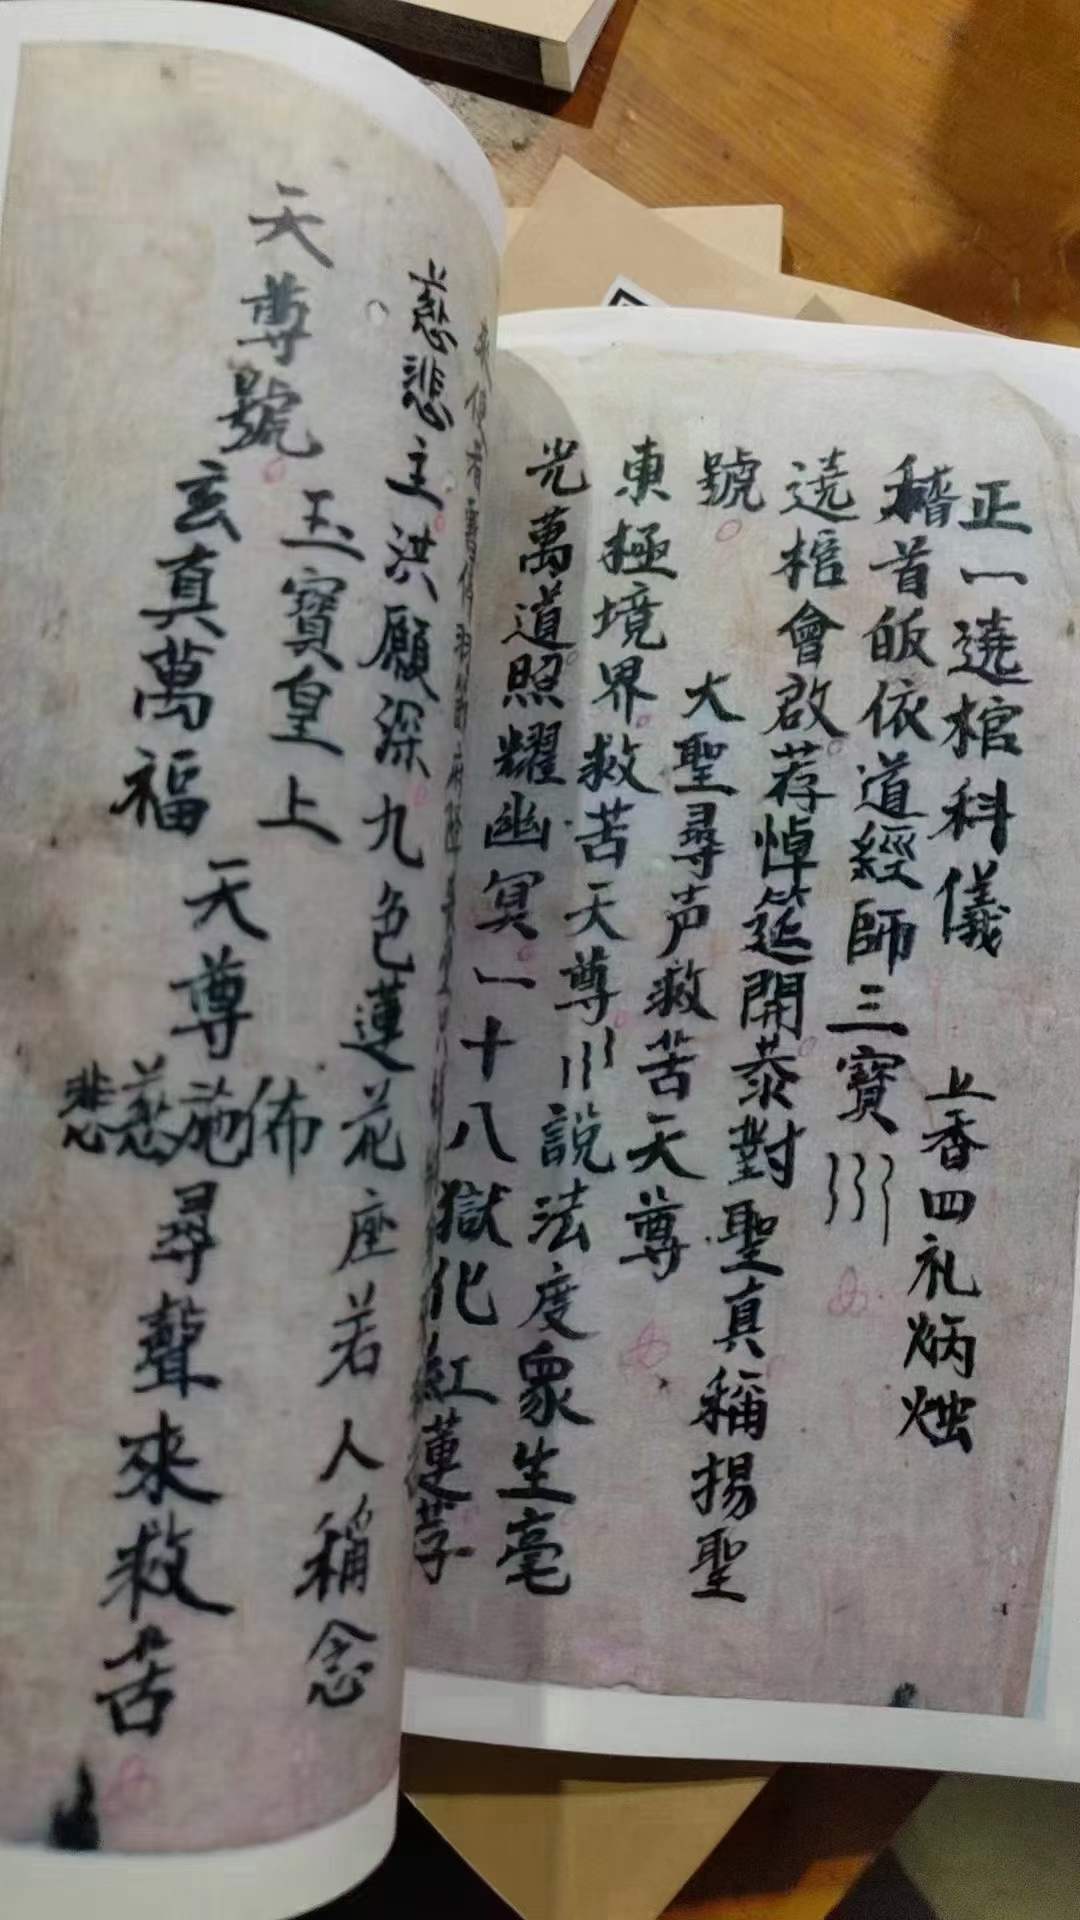 正一遶棺科儀 上香四礼炳烛
稽首皈依道經師三寶
遶棺會啟荐悼筵開恭對聖真稱揚聖
號 大聖尋声救苦天尊
東極境界救苦天尊 說法度衆生毫
光萬道照耀幽冥一十八獄化紅蓮荐
慈悲主洪願深九色蓮花座若人稱念
天尊號 玉寶皇上
玄真萬福 天尊 佈施慈悲 尋聲來救苦